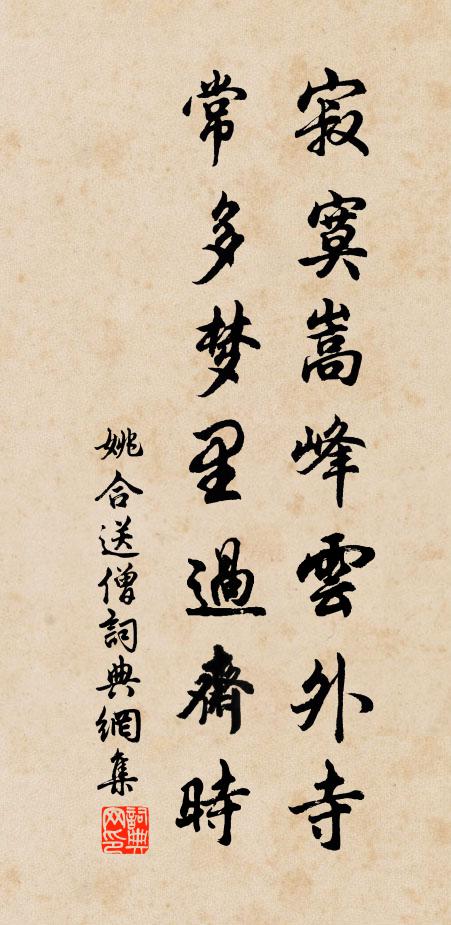 寂寞嵩峰雲外寺
常多梦里過齋時
姚合送僧詞典網集
詞典網印